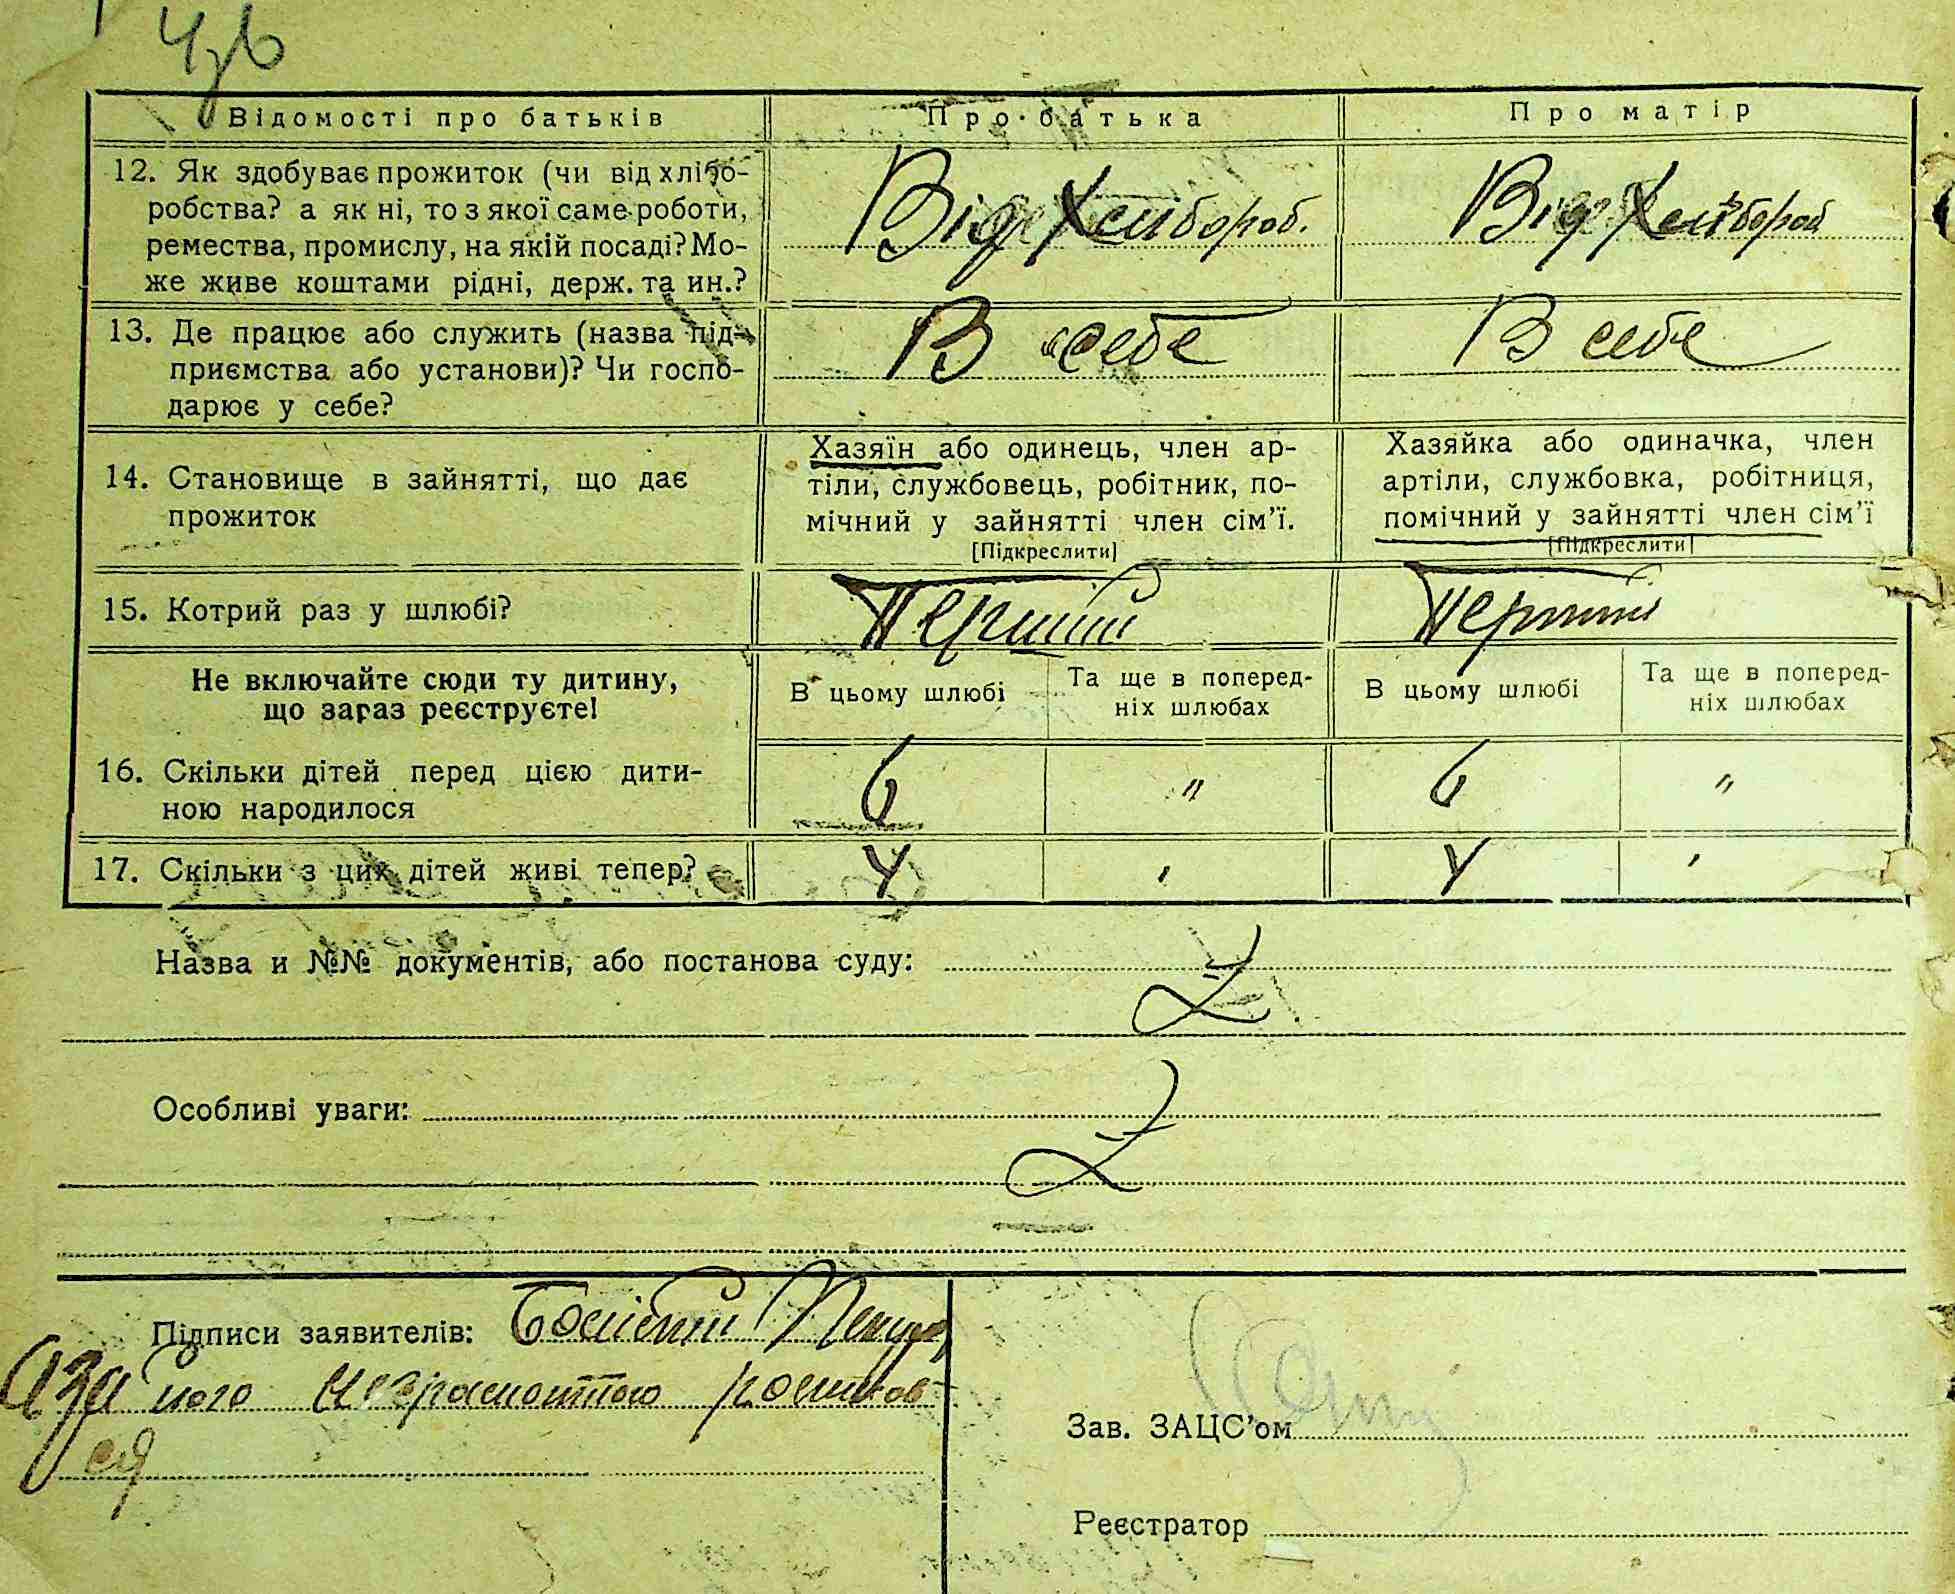 Відомості про батьків
Про батька
Про матір
12. Як здобуває прожиток (чи від хлібо-
робства? а як ні, то з якої саме роботи,
ремества, промислу, на якій посаді? Мо-
же живе коштами рідні, держ. та ин.?
Від Хлібороб.
Від Хлібороб
13. Де працює або служить (назва під-
приємства або установи)? Чи госпо-
дарює у себе?
В себе
В себе
14. Становище в зайнятті, що дає
прожиток
Хазяїн або одинець, член ар-
тіли, службовець, робітник, по-
мічний у зайнятті член сім’ї.
[Підкреслити]
Хазяйка або одиначка, член
артіли, службовка, робітниця,
помічний у зайнятті член сім’ї
[Підкреслити]
15. Котрий раз у шлюбі?
Перший
Перший
Не включайте сюди ту дитину,
що зараз реєструєте!
В цьому шлюбі
Та ще в поперед-
ніх шлюбах
В цьому шлюбі
Та ще в поперед-
ніх шлюбах
16. Скільки дітей перед цією дити-
ною народилося
6
"
6
"
17. Скільки з цих дітей живі тепер?
4
4
Назва и №№ документів, або постанова суду:
Особливі уваги:
Підписи заявителів:
його неграмотного
ся
Зав. ЗАЦС’ом
Реєстратор